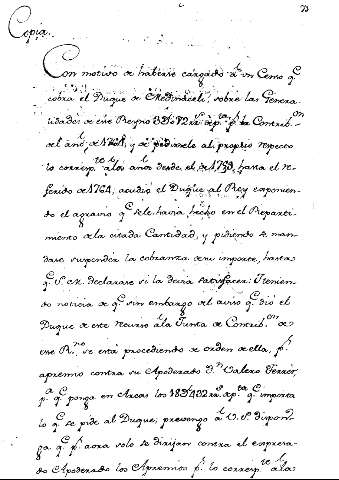 Copia.
Con motivo de haberse cargado al un Censo q.e
cobra el Duque de Medinaceli, sobre las Genera
lidades de ese Reyno p.r la Contrib.on
del año de 1764, y de pedirsele al proprio respecto
lo corresp.te a los años desde el de 1739, hasta el re-
ferido de 1764, acudio el Duque al Rey exponien-
do el agravio q.e se le havia hecho en el Reparti-
miento de la citada Cantidad, y pidiendo se man-
dase suspender la cobranza de su importe, hasta
q.e S. M. declarase si la devia satisfacer: Tenien-
do noticia de q.e sin embargo del aviso q.e dió el
Duque de este recurso a la Junta de Contrib.on de
ese R.no se está procediendo de orden de ella, p.r
apremio contra su Apoderado D.n Valero Ferrer,
p.a q.e ponga en Arcas los q.e importa
lo q.e se pide al Duque, prevengo a V. S. dispon-
ga q.e p.r aora solo se dirijan contra el expresa-
do Apoderado los Apremios p.r lo corresp.te a la